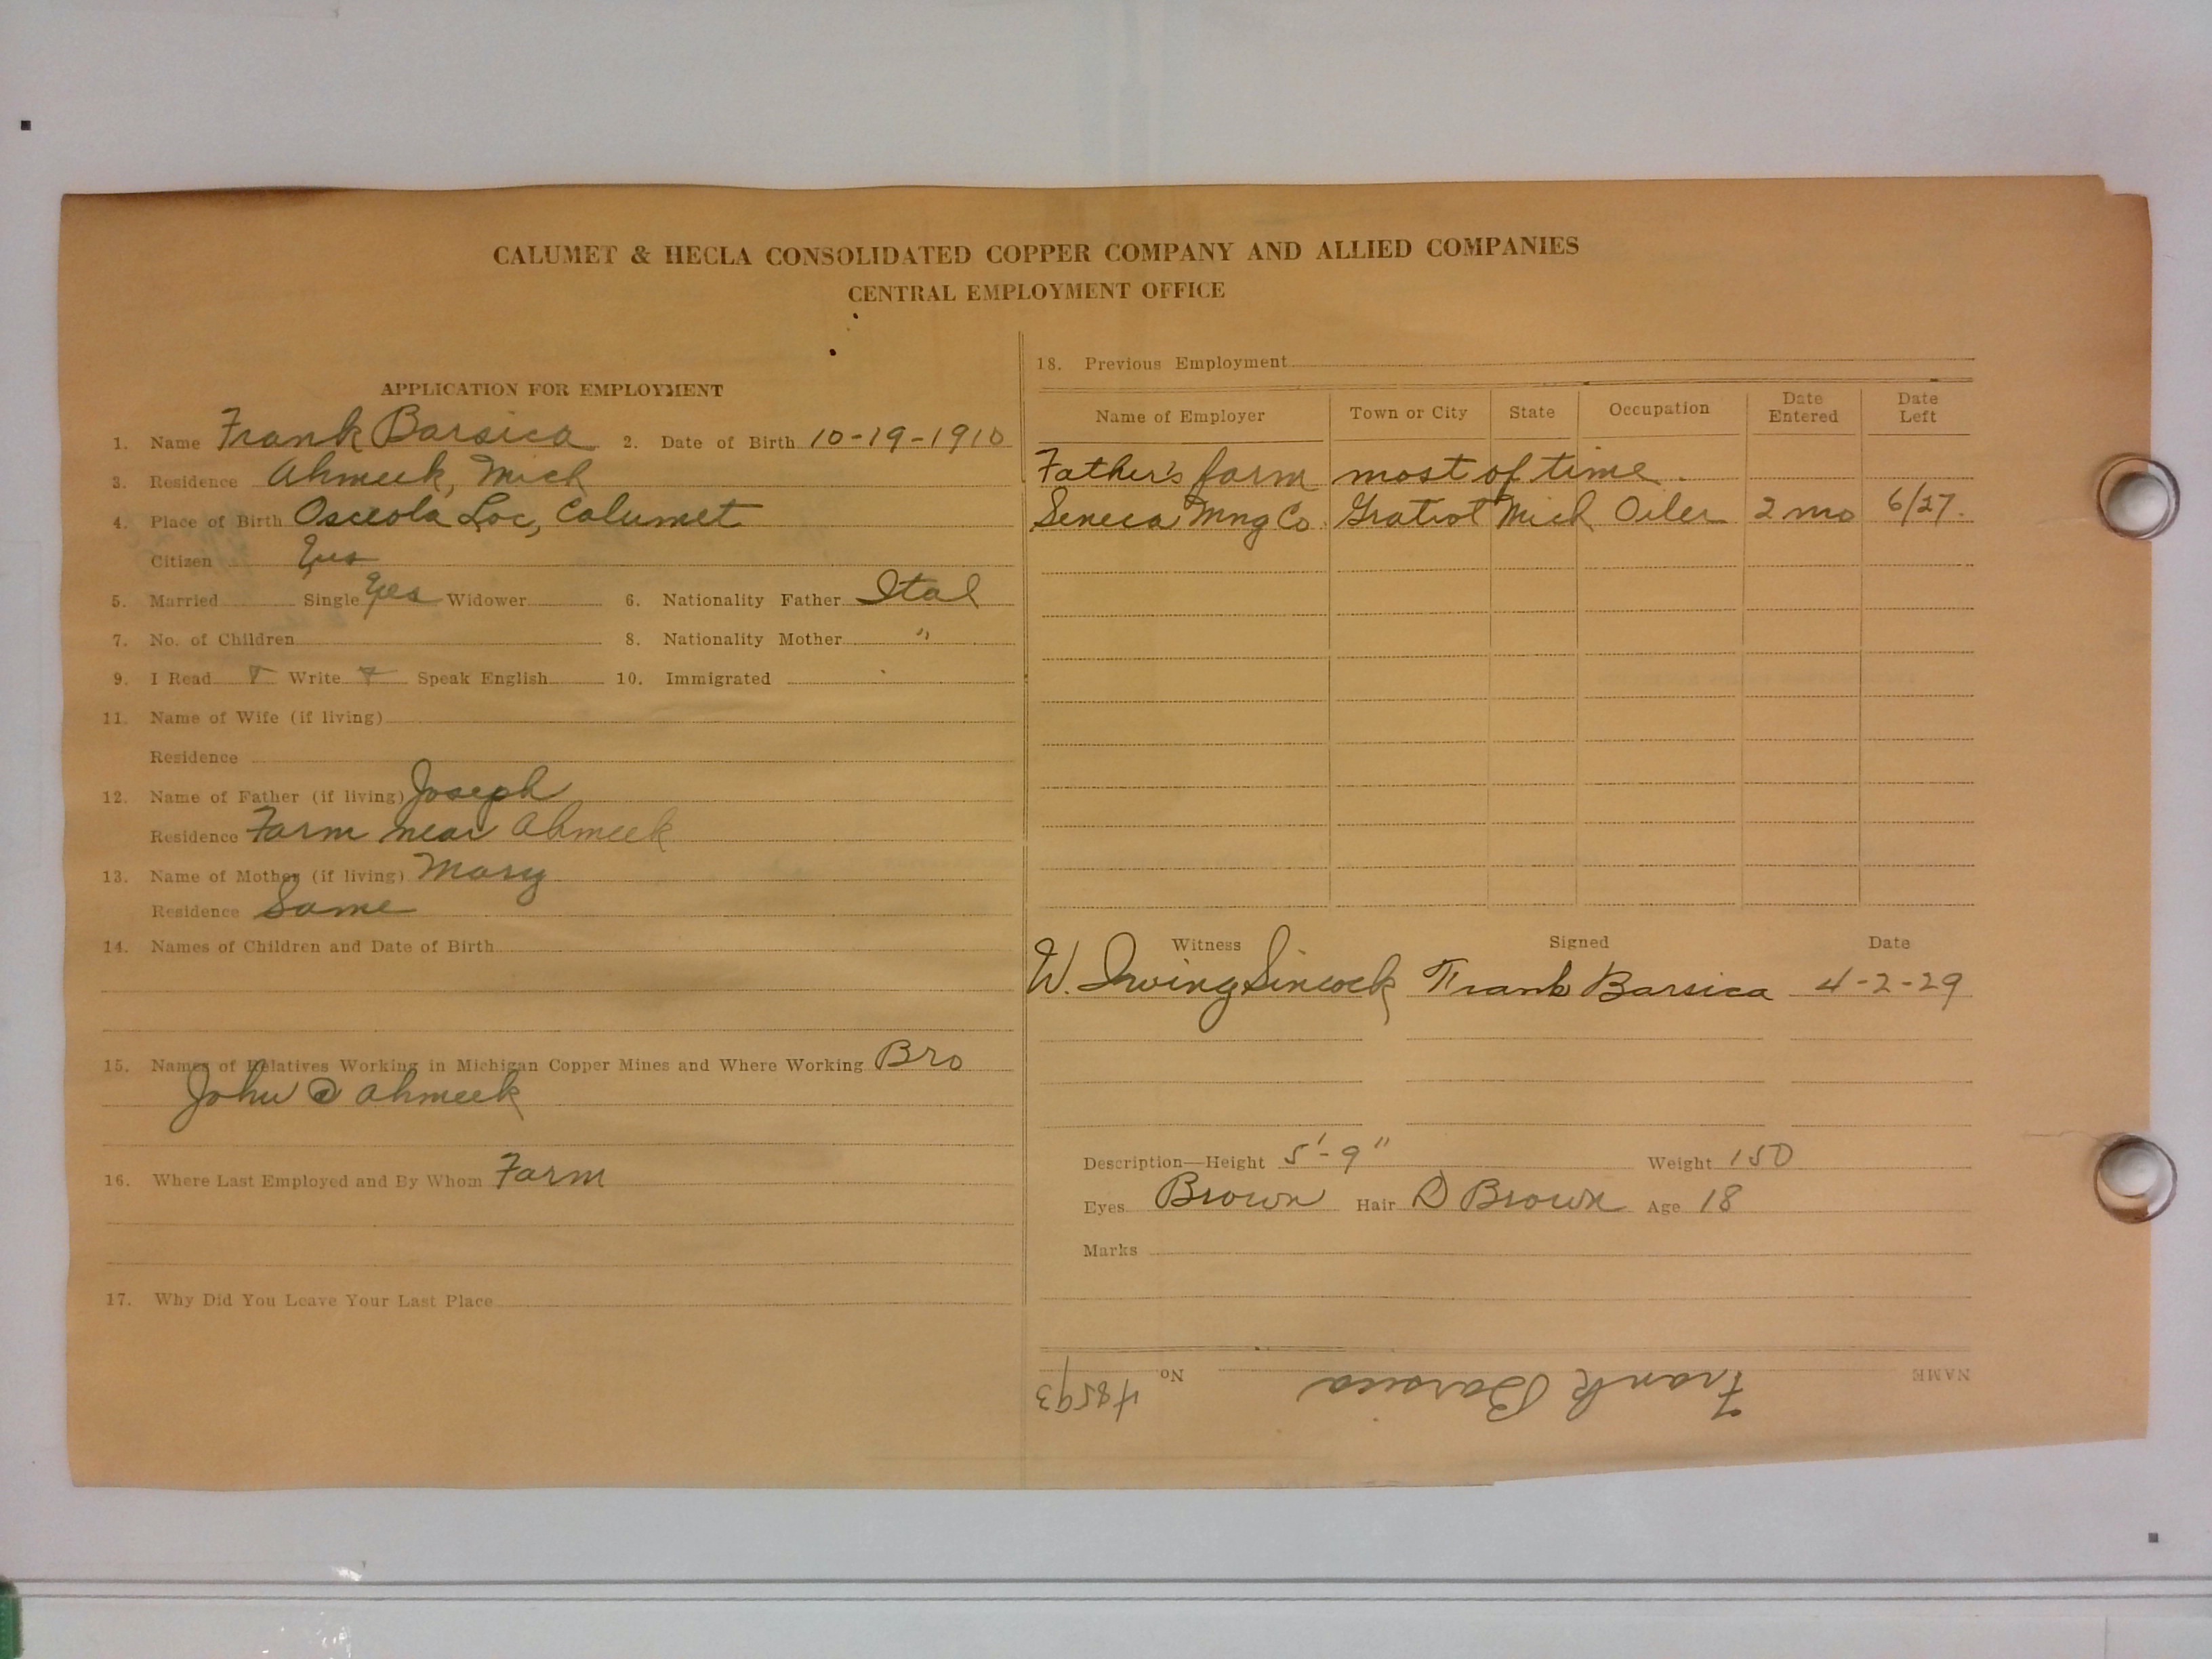 CALUMET & HECLA CONSOLIDATED COPPER COMPANY AND ALLIED COMPANIES
CENTRAL EMPLOYMENT OFFICE
APPLICATION FOR EMPLOYMENT
1. Name Frank Barsica 2. Date of Birth 10-19-1910
3. Residence Ahmeek, Mich
4. Place of Birth Osceola Loc, Calumet
Citizen Yes
5. Married Single Yes Widower 6. Nationality Father Ital
7. No. of Children 8. Nationality Mother "
9. I Read Write Speak English 10. Immigrated
11. Name of Wife (if living)
Residence
12. Name of Father (if living) Joseph
Residence Farm near Ahmeek
13. Name of Mother (if living) Mary
Residence Same
14. Names of Children and Date of Birth
15. Names of Relatives Working in Michigan Copper Mines and Where Working Bro
John @ Ahmeek
16. Where Last Employed and By Whom Farm
17. Why Did You Leave Your Last Place
18. Previous Employment
Name of Employer Town or City State Occupation Date Entered Date Left
Father's farm most of time.
Seneca Mng Co. Gratiot Mich Oiler 2 mo 6/27.
Witness Signed Date
W. Irving Sincock Frank Barsica 4-2-29
Description—Height 5'-9" Weight 150
Eyes Brown Hair D Brown Age 18
Marks
NAME Frank Barsica No 48593